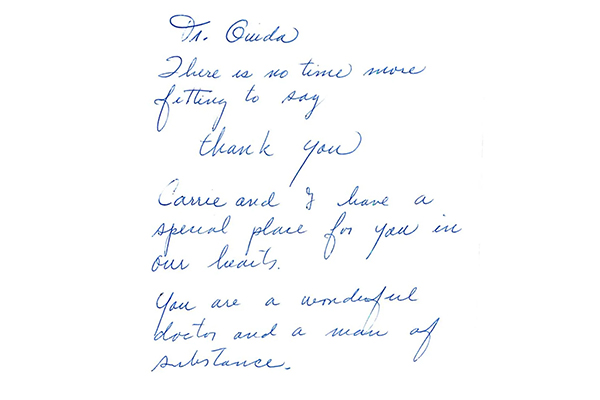 Dr. Guida
There is no time more
fitting to say
thank you
Carrie and I have a
special place for you in
our hearts.
You are a wonderful
doctor and a man of
substance.